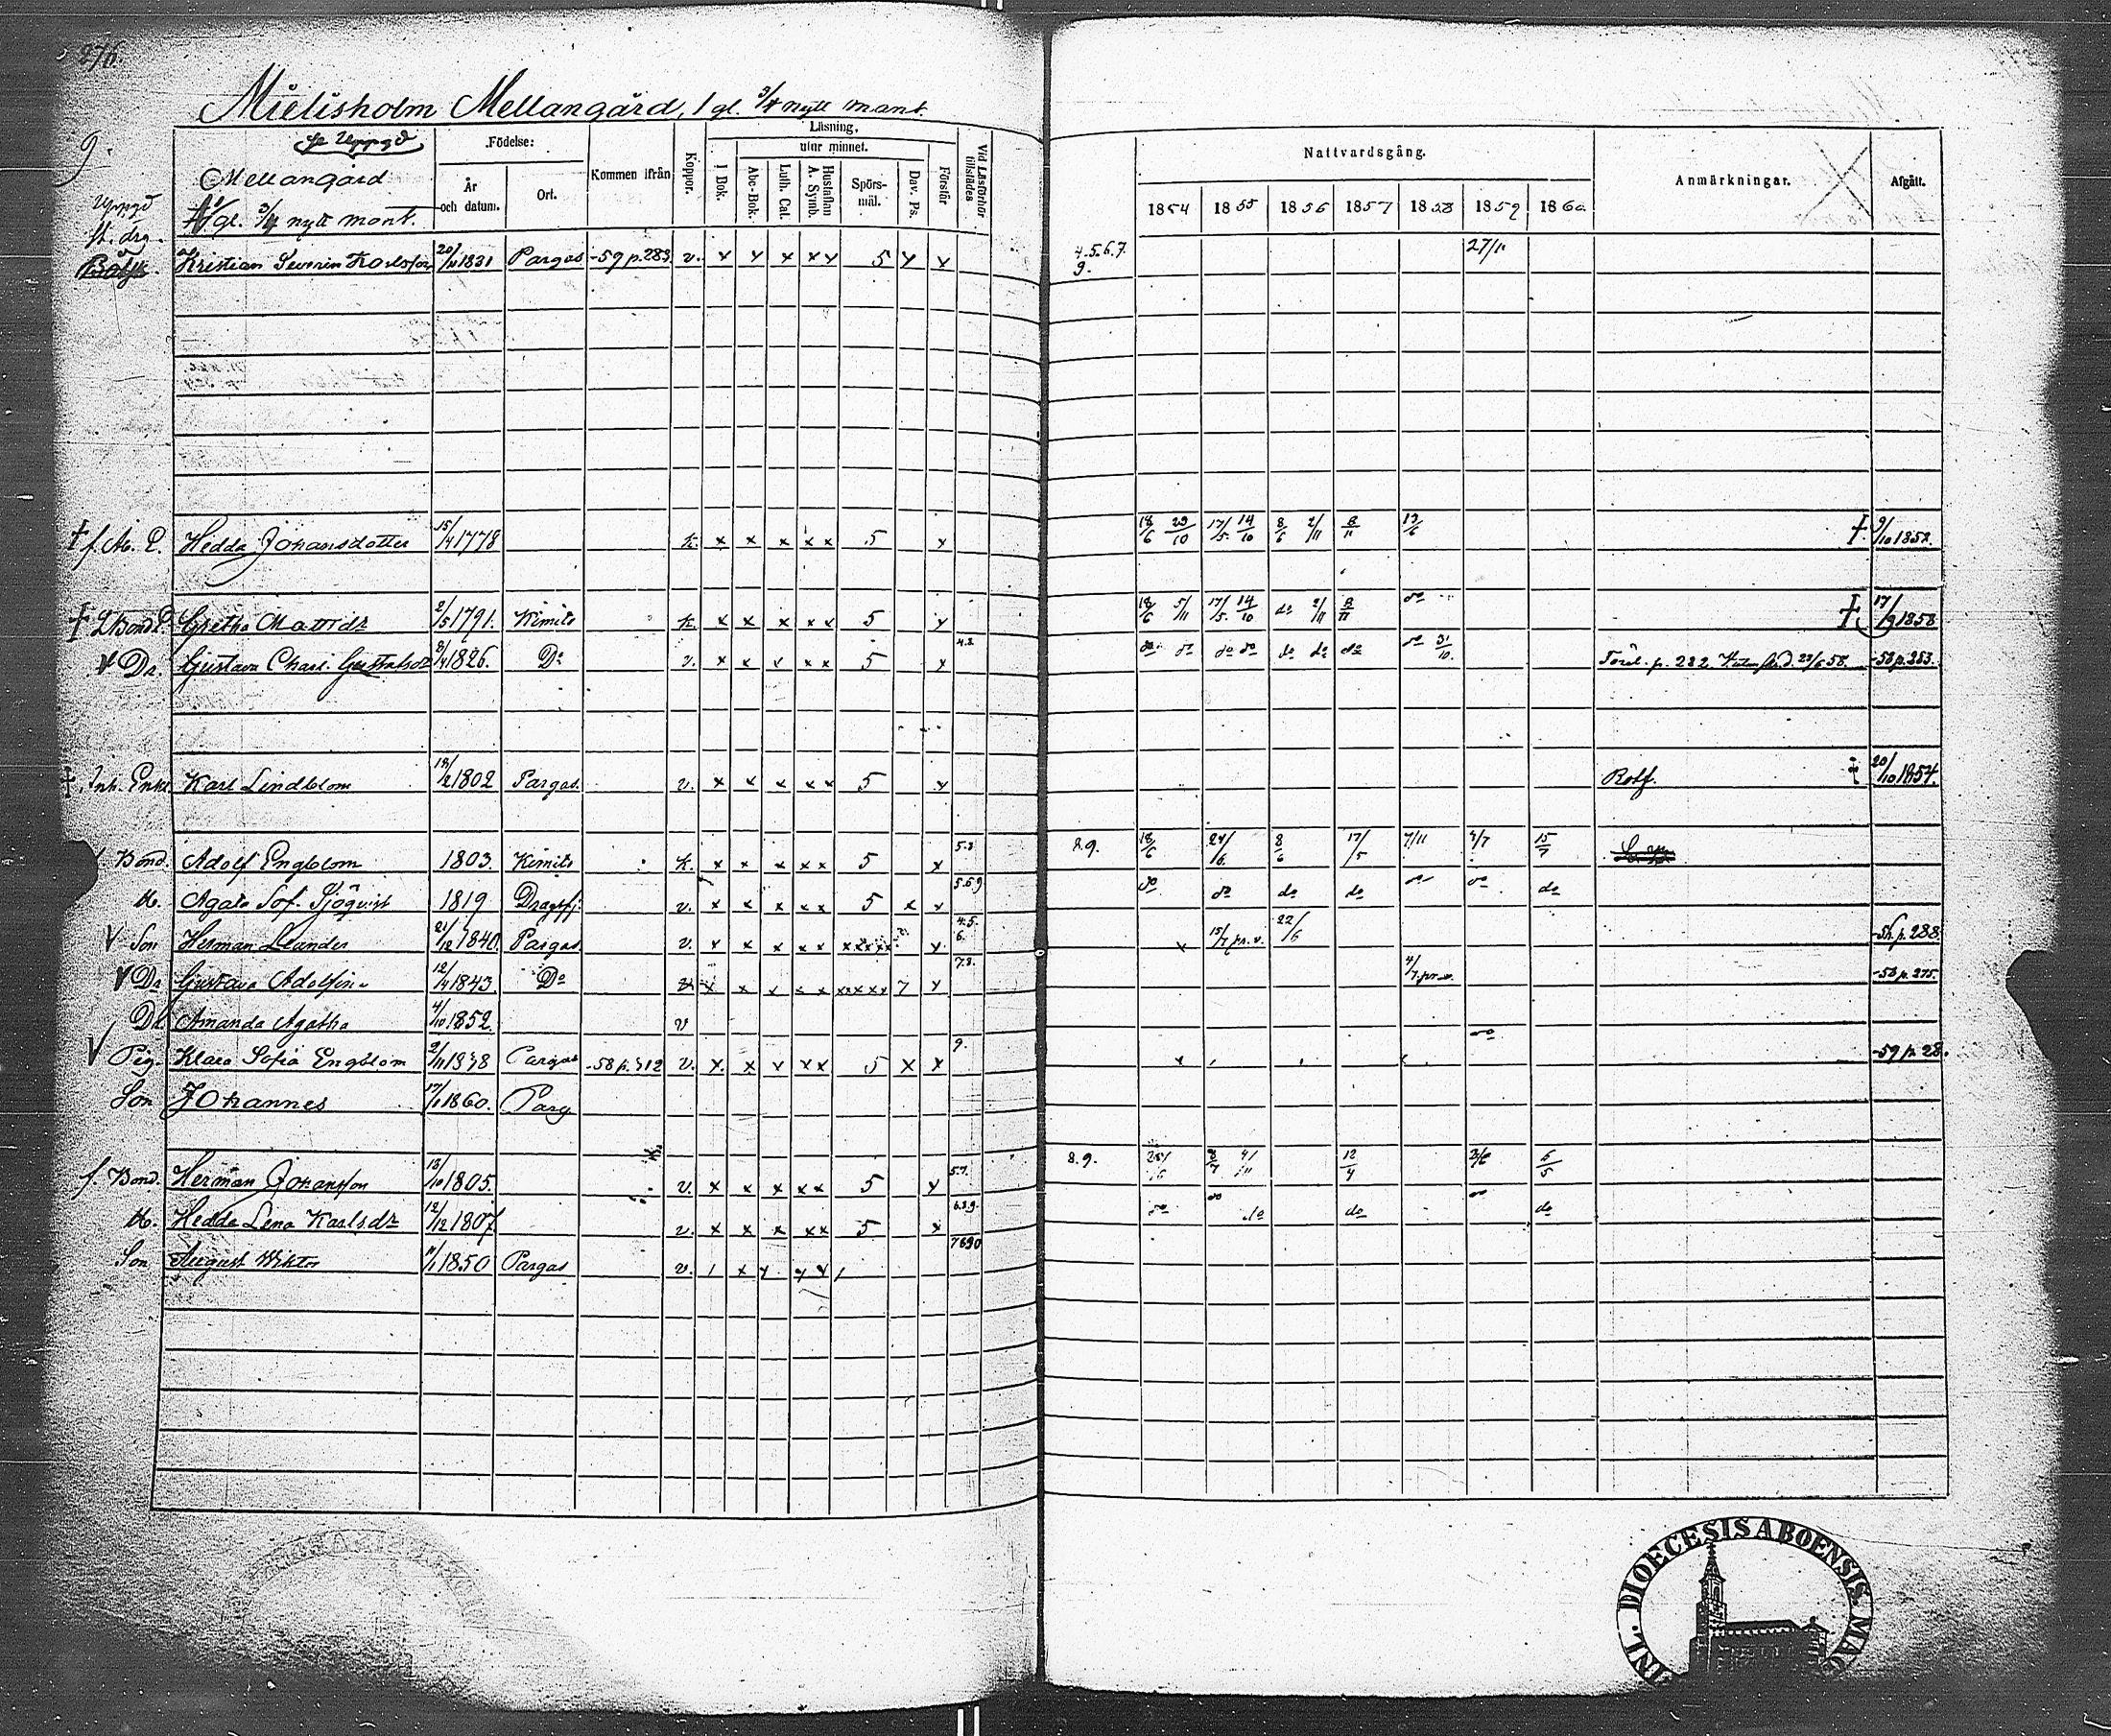 276
Mielisholm Mellangård, 1 gl. 3/4 nytt mant.
9.
Födelse:
Kommen ifrån
Koppor.
Läsning.
I Bok.
utur minnet.
Abc-Bok.
Luth. Cat.
Hustaflan A. Symb.
Spörs-mål.
Dav. Ps.
Förstår
Vid Läsförhör tillstädes
År och datum.
Ort.
Nattvardsgång.
1854 1855 1856 1857 1858 1859 1860
Anmärkningar.
Afgått.
Uppgd
Mellangård
1 gl. 3/4 nytt mant.
Uppgd
Kristian Severin Karlsson 20/11 1831 Pargas -59 p. 283 v. x x x x x 5 x x 4.5.6.7. 9. 27/11
† Hedda Johansdotter 15/4 1778 k. x x x x x 5 x 18/6 29/10 17/5 14/10 8/6 2/11 8/11 13/6 † 9/10 1858.
† Gretha Mattsdr 2/5 1791. Kimito k. x x x x x 5 x 18/6 5/11 17/5 14/10 do 2/11 8/11 do † 17/9 1858
V Dr. Gustava Charl. Gustafsdr 1826. Do v. x x x x x 5 x 4.8. do do do do do do do do 31/10. -58 p. 283.
† Inh. Enkl. Karl Lindblom 18/2 1802 Pargas. v. x x x x x 5 x Rotf. † 20/10 1854.
Bond. Adolf Engblom 1803. Kimito k. x x x x x 5 x 5.8. 8.9. 18/6 24/6 8/6 17/5 7/11 3/7 15/7
H. Agata Sof. Sjöqvist 1819 Dragsfj. v. x x x x x 5 x x 5.6.9 do do do do do do do
V Son Herman Leander 21/12 1840. Pargas v. x x x x x xxxxx x 4.5. 6. x 15/7 pr. v. 22/6 p. 288.
V Dr Gustava Adolfina 12/4 1843. Do v x x x x x xxxxx 7 x 7.8. 4/7 pr. v. -58 p. 275.
Dr Amanda Agatha 4/10 1852. v
V Pig. Klara Sofia Engblom 2/11 1838 Pargas -58 p. 312 v. x x x x x 5 x x 9. do -59 p. 28.
Son Johannes 17/1 1860. Parg
f. Bond. Herman Johansson 13/10 1805. v. x x x x x 5 x 5.7. 8.9. 12/4 5/5
H. Hedda Lena Karlsdr 12/12 1807 v. x x x x x 5 x 6.8.9. do do do do do do
Son August Viktor 11/1 1850 Pargas v. 7 8 9 0
INL. DIOECESIS ABOENSIS MAG